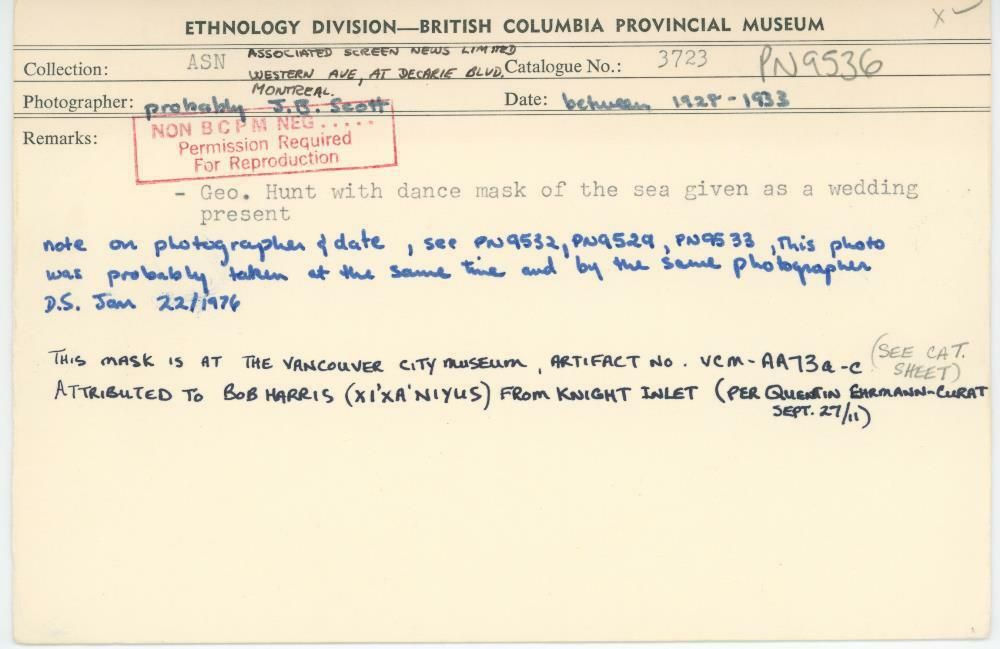 ETHNOLOGY DIVISION—BRITISH COLUMBIA PROVINCIAL MUSEUM
X
Collection: ASN ASSOCIATED SCREEN NEWS LIMITED
WESTERN AVE, AT DECARIE BLVD.
MONTREAL.
Catalogue No.: 3723 PN9536
Photographer: probably J.B. Scott
Date: between 1928-1933
Remarks:
NON BCPM NEG.....
Permission Required
For Reproduction
- Geo. Hunt with dance mask of the sea given as a wedding
present
note on photographer & date, see PN9532, PN9529, PN9533, This photo
was probably taken at the same time and by the same photographer
D.S. Jan 22/1976
THIS MASK IS AT THE VANCOUVER CITY MUSEUM, ARTIFACT NO. VCM-AA73a-c
(SEE CAT.
SHEET)
ATTRIBUTED TO BOB HARRIS (XI'XA'NIYUS) FROM KNIGHT INLET (PER QUENTIN EHRMANN-CURAT
SEPT. 27/11)